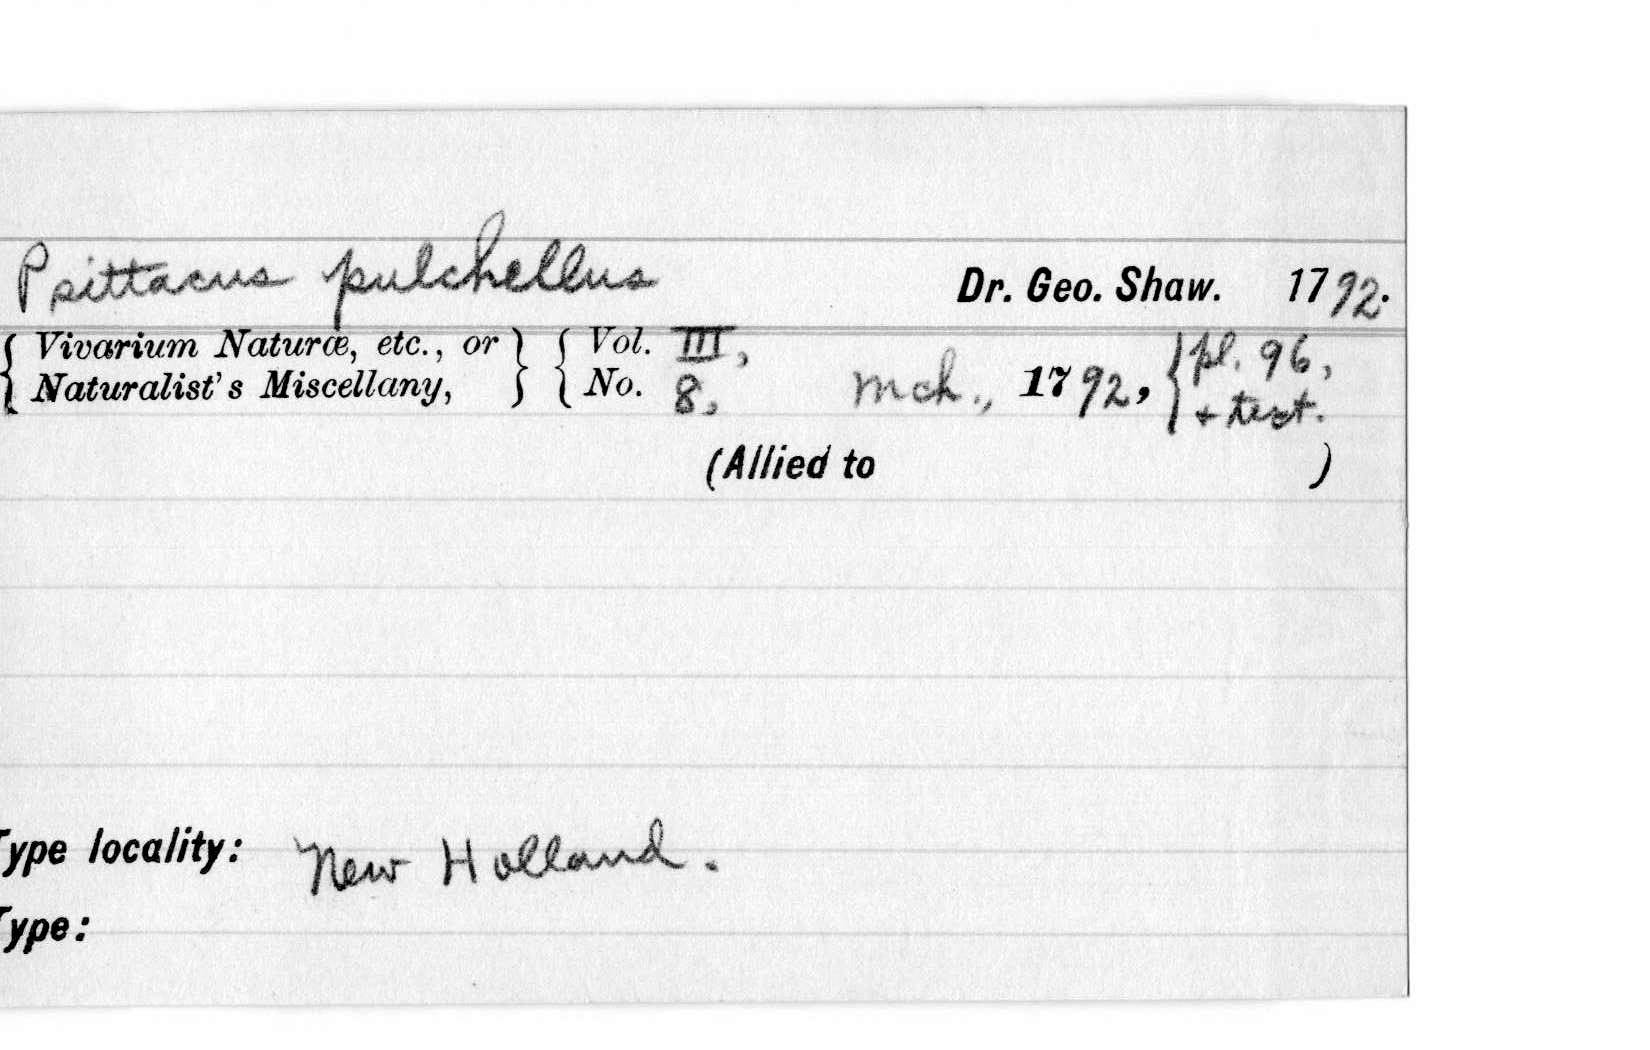 Psittacus pulchellus Dr. Geo. Shaw. 1792.
{ Vivarium Naturæ, etc., or } { Vol. III,
{ Naturalist's Miscellany, } { No. 8, Mch., 1792, { pl. 96, + text.
(Allied to )
Type locality: New Holland.
Type: